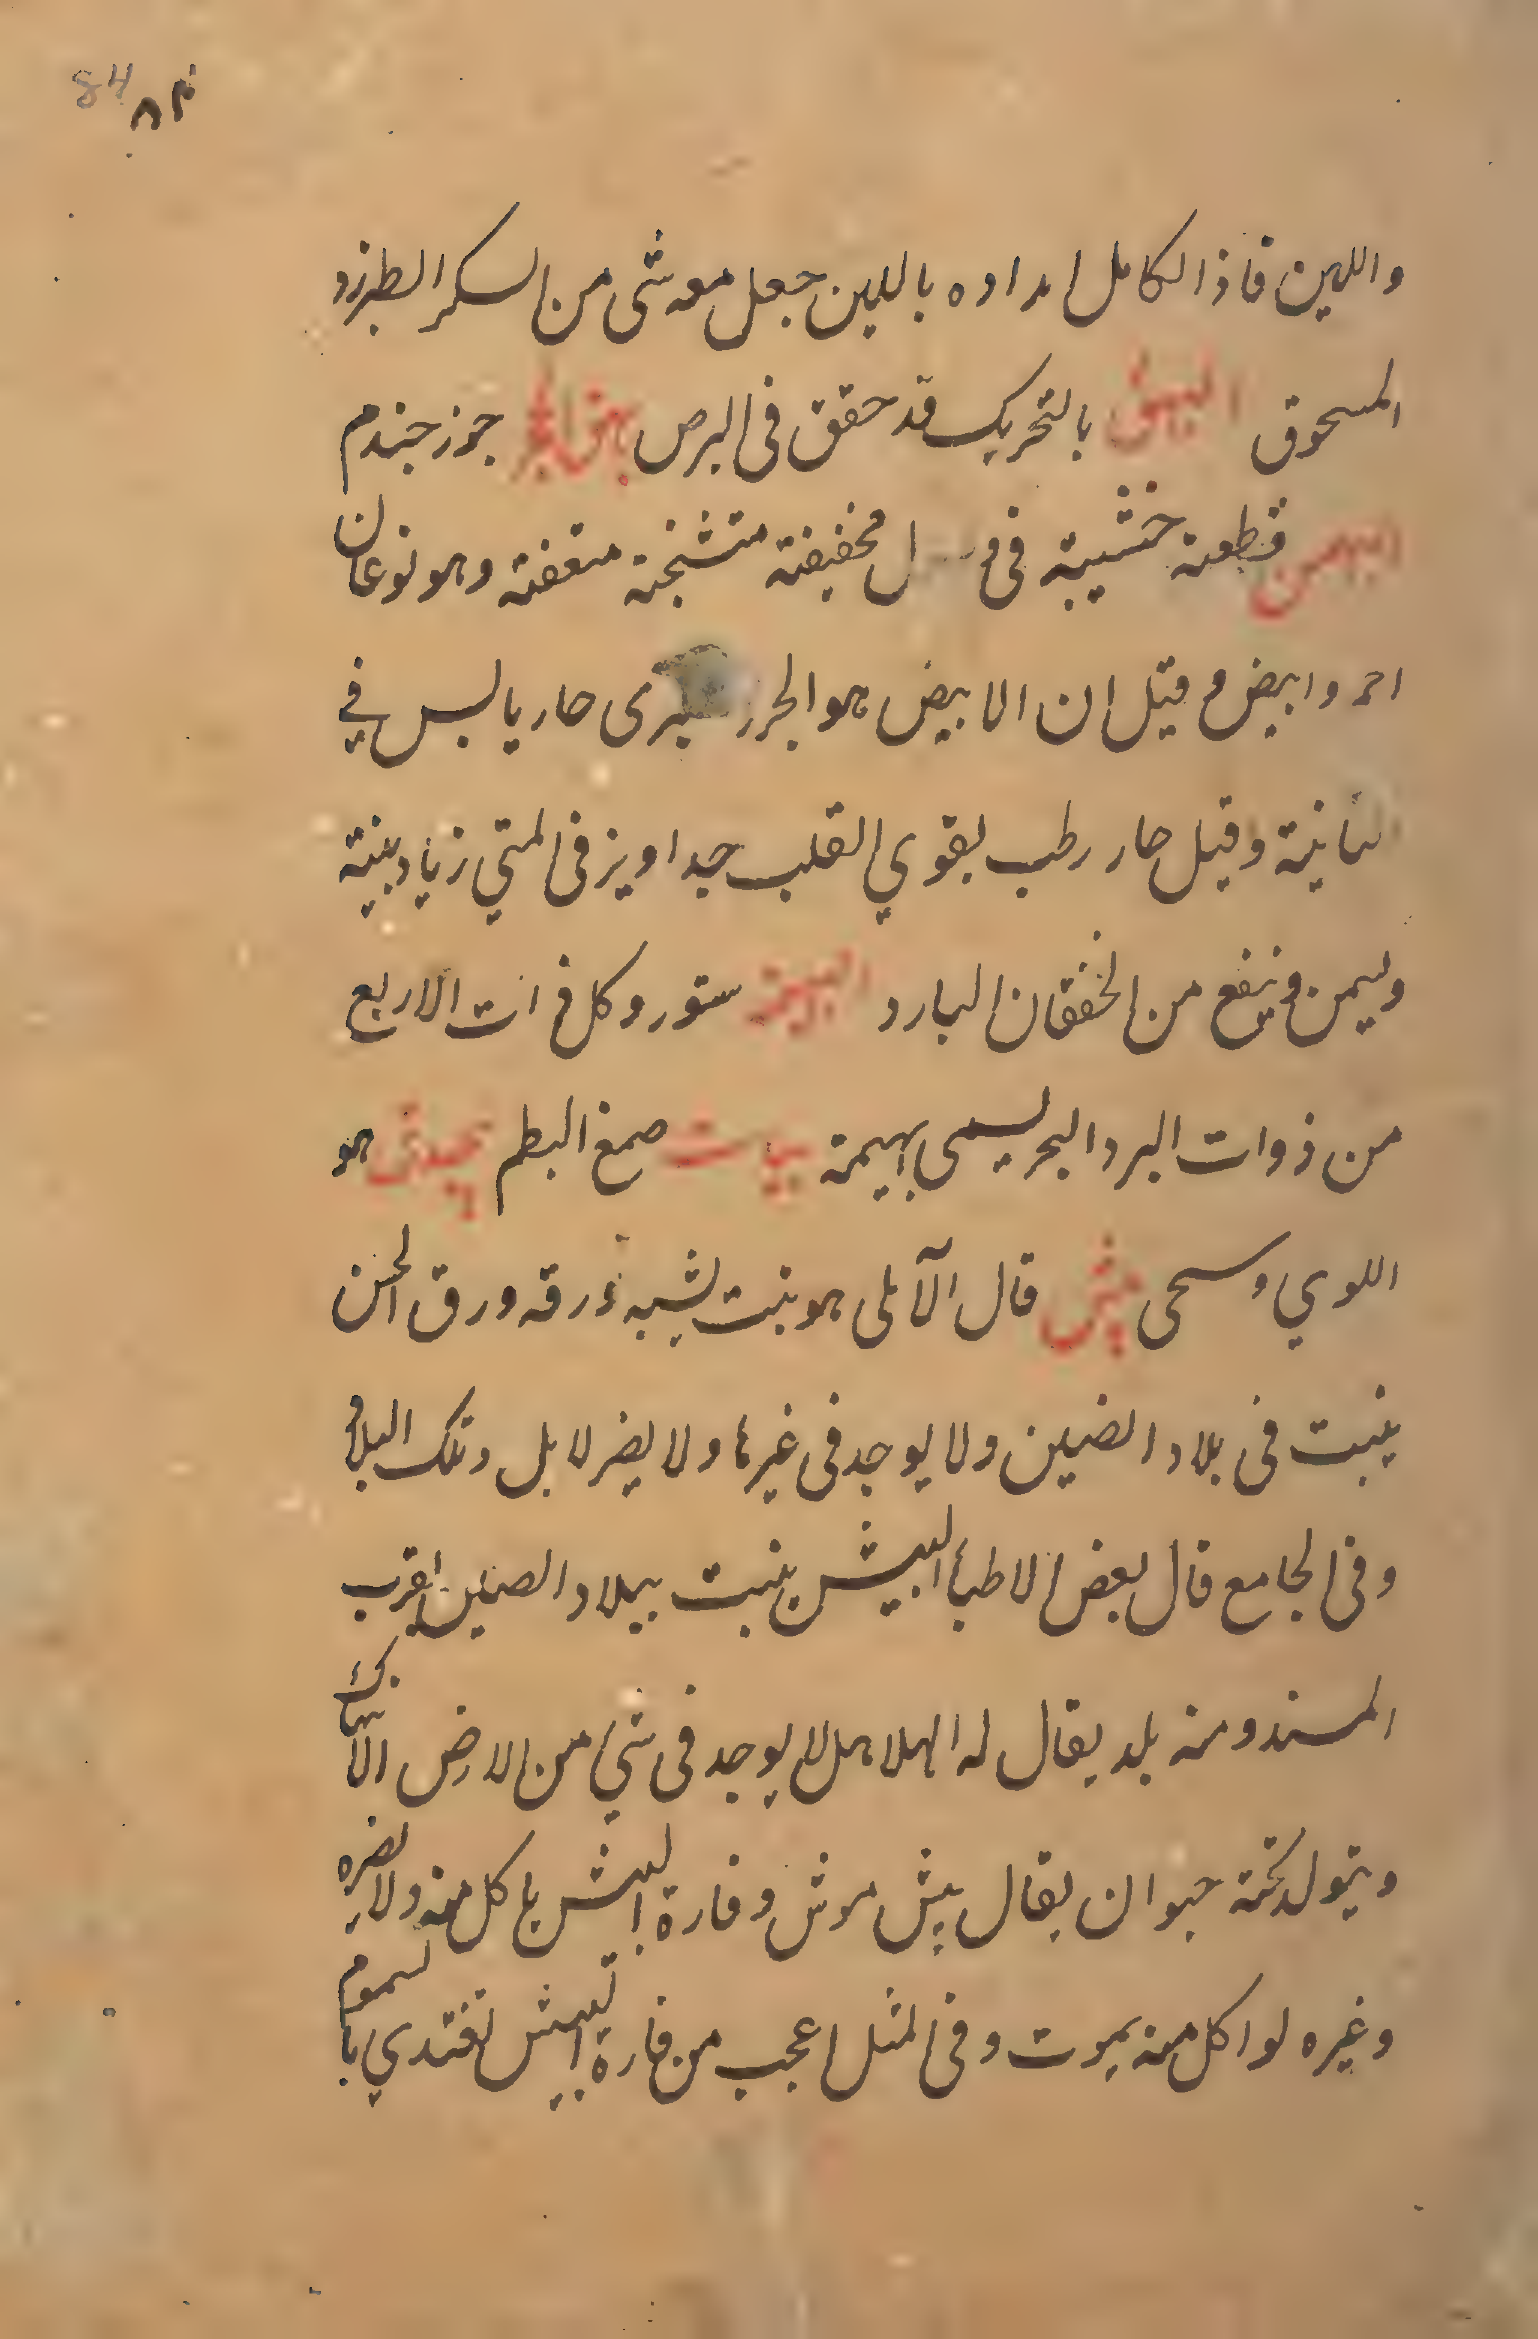 84
٨٤
واللين فاذا كامل امداده باللين جعل معه شى من السكر الطبرزد
المسحوق البهق بالتحريك قد حقق فى البرص جوز جندم
البهمن قطعة خشبية فى مخفيفة متشنجة متغفة وهو نوعان
احمر وابيض و قيل ان الابيض هو الجزر حار يابس في
الثانية وقيل حار رطب يقوي القلب جدا ويز فى المني زياد بينة
ويسمن وينفع من الخفقان البارد البهيمة ستور وكل ذات الاربع
من ذوات البر والبحر يسمى بهيمة صمغ البطم هو
اللوي وسحى بيش قال الآملى هو نبت يشبه ورقه ورق الخس
ينبت فى بلاد الصين ولا يوجد فى غيرها ولا يضر لابل وتلك البلاد
وفى الجامع قال بعض الاطباء البيش ينبت ببلاد الصين بقرب
السند ومنه بلد يقال له الهلاهل لا يوجد فى شي من الارض الا هناك
ويتولد تحته حيوان يقال بيش موش وفارة البيش ياكل منه ولا يضره
وغيره لو اكل منه يموت وفى المثل اعجب من فارة البيش تغتدي بالسموم